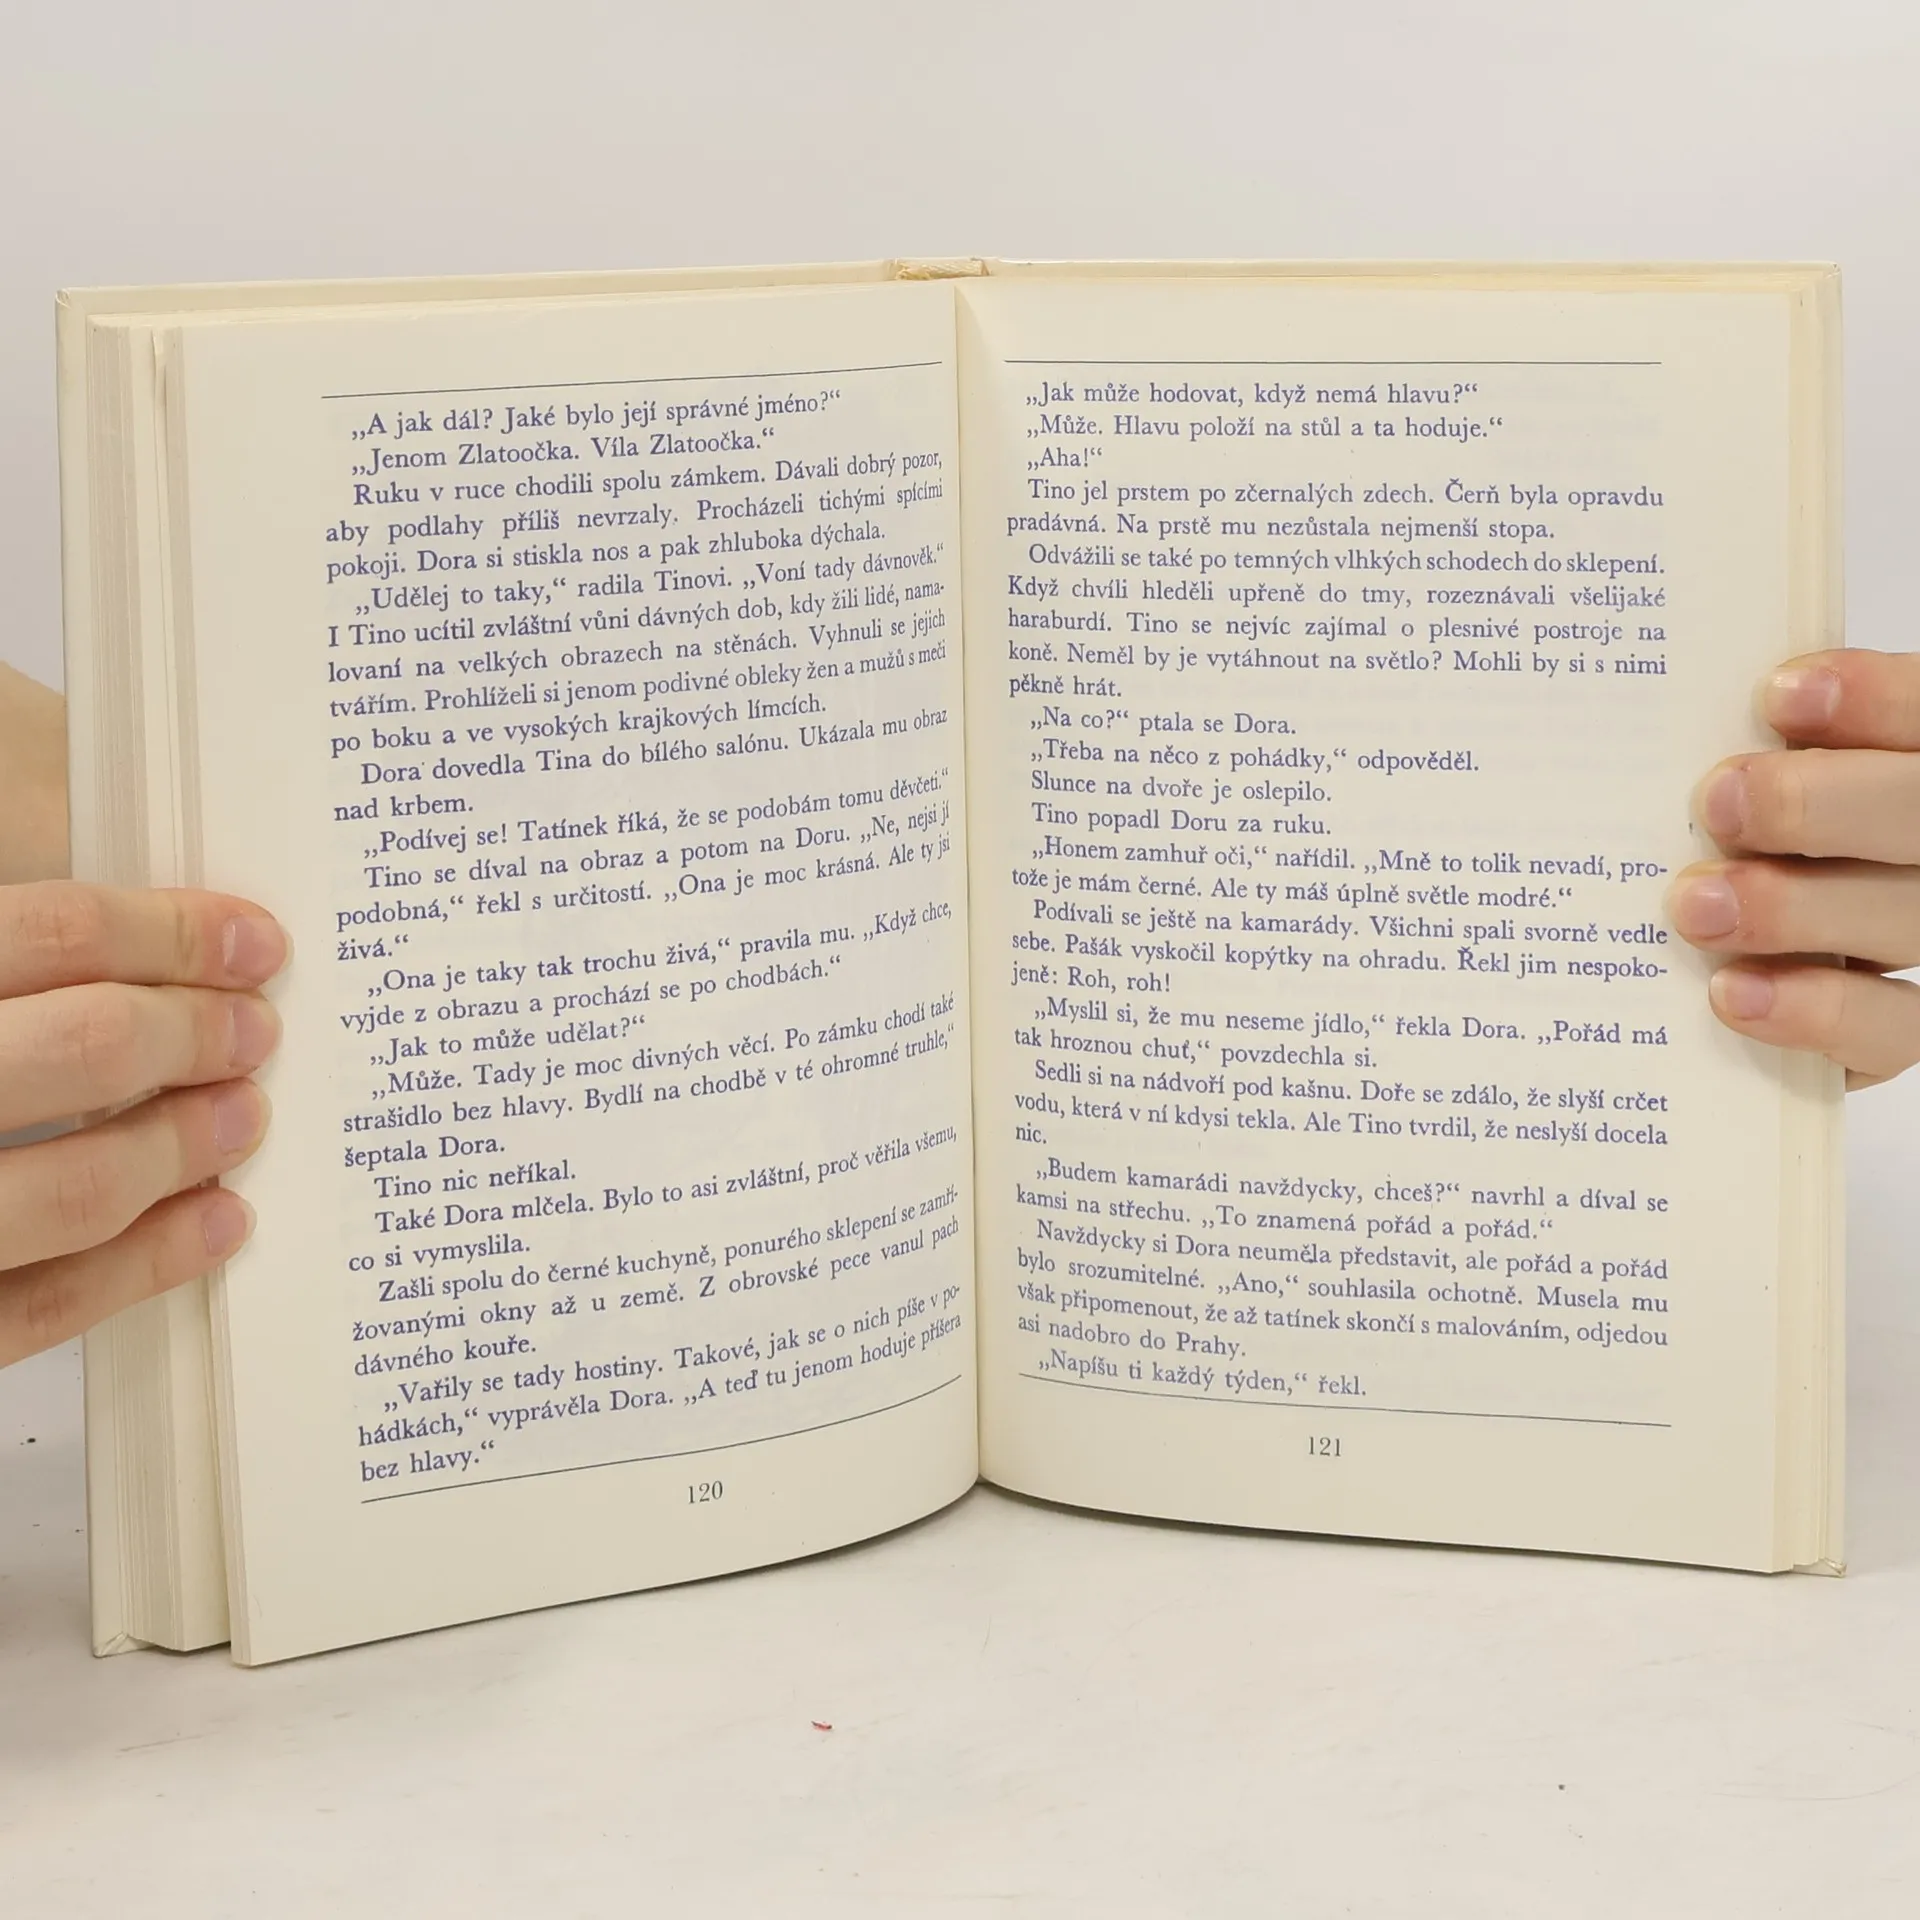 „A jak dál? Jaké bylo její správné jméno?“
„Jenom Zlatoočka. Víla Zlatoočka.“
Ruku v ruce chodili spolu zámkem. Dávali dobrý pozor,
aby podlahy příliš nevrzaly. Procházeli tichými spícími
pokoji. Dora si stiskla nos a pak zhluboka dýchala.
„Udělej to taky,“ radila Tinovi. „Voní tady dávnověk.“
I Tino ucítil zvláštní vůni dávných dob, kdy žili lidé, nama-
lovaní na velkých obrazech na stěnách. Vyhnuli se jejich
tvářím. Prohlíželi si jenom podivné obleky žen a mužů s meči
po boku a ve vysokých krajkových límcích.
Dora dovedla Tina do bílého salónu. Ukázala mu obraz
nad krbem.
„Podívej se! Tatínek říká, že se podobám tomu děvčeti.“
Tino se díval na obraz a potom na Doru. „Ne, nejsi jí
podobná,“ řekl s určitostí. „Ona je moc krásná. Ale ty jsi
živá.“
„Ona je taky tak trochu živá,“ pravila mu. „Když chce,
vyjde z obrazu a prochází se po chodbách.“
„Jak to může udělat?“
„Může. Tady je moc divných věcí. Po zámku chodí také
strašidlo bez hlavy. Bydlí na chodbě v té ohromné truhle,“
šeptala Dora.
Tino nic neříkal.
Také Dora mlčela. Bylo to asi zvláštní, proč věřila všemu,
co si vymyslila.
Zašli spolu do černé kuchyně, ponurého sklepení se zamří-
žovanými okny až u země. Z obrovské pece vanul pach
dávného kouře.
„Vařily se tady hostiny. Takové, jak se o nich píše v po-
hádkách,“ vyprávěla Dora. „A teď tu jenom hoduje příšera
bez hlavy.“
120
„Jak může hodovat, když nemá hlavu?“
„Může. Hlavu položí na stůl a ta hoduje.“
„Aha!“
Tino jel prstem po zčernalých zdech. Čerň byla opravdu
pradávná. Na prstě mu nezůstala nejmenší stopa.
Odvážili se také po temných vlhkých schodech do sklepení.
Když chvíli hleděli upřeně do tmy, rozeznávali všelijaké
haraburdí. Tino se nejvíc zajímal o plesnivé postroje na
koně. Neměl by je vytáhnout na světlo? Mohli by si s nimi
pěkně hrát.
„Na co?“ ptala se Dora.
„Třeba na něco z pohádky,“ odpověděl.
Slunce na dvoře je oslepilo.
Tino popadl Doru za ruku.
„Honem zamhuř oči,“ nařídil. „Mně to tolik nevadí, pro-
tože je mám černé. Ale ty máš úplně světle modré.“
Podívali se ještě na kamarády. Všichni spali svorně vedle
sebe. Pašák vyskočil kopýtky na ohradu. Řekl jim nespoko-
jeně: Roh, roh!
„Myslil si, že mu neseme jídlo,“ řekla Dora. „Pořád má
tak hroznou chuť,“ povzdechla si.
Sedli si na nádvoří pod kašnu. Doře se zdálo, že slyší crčet
vodu, která v ní kdysi tekla. Ale Tino tvrdil, že neslyší docela
nic.
„Budem kamarádi navždycky, chceš?“ navrhl a díval se
kamsi na střechu. „To znamená pořád a pořád.“
Navždycky si Dora neuměla představit, ale pořád a pořád
bylo srozumitelné. „Ano,“ souhlasila ochotně. Musela mu
však připomenout, že až tatínek skončí s malováním, odjedou
asi nadobro do Prahy.
„Napíšu ti každý týden,“ řekl.
121